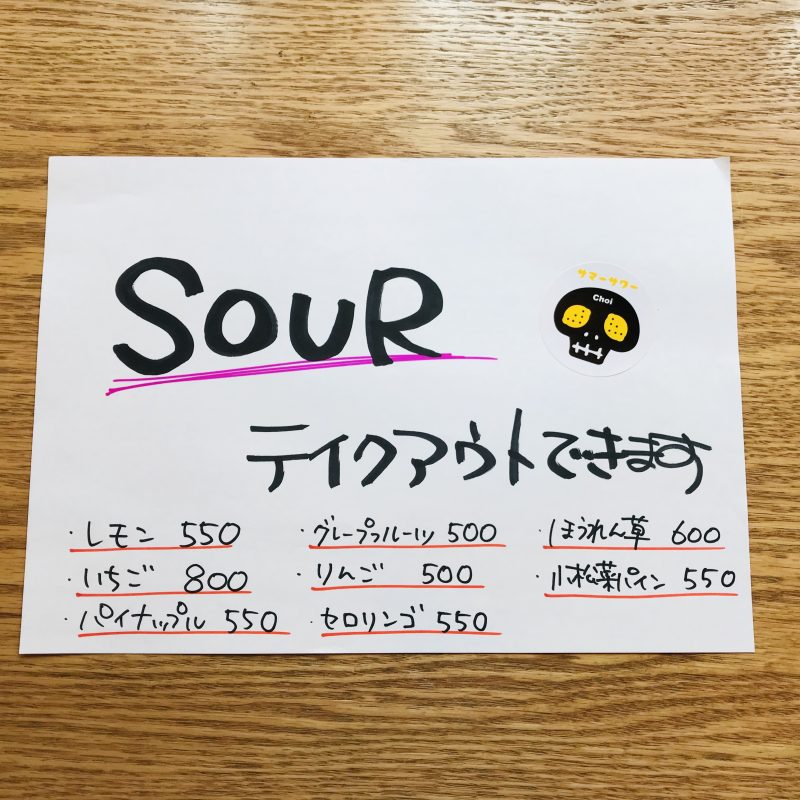 SOUR
サマーサワー
Choi
テイクアウトできます
・レモン 550
・グレープフルーツ 500
・ほうれん草 600
・いちご 800
・りんご 500
・小松菜パイン 550
・パイナップル 550
・セロリンゴ 550